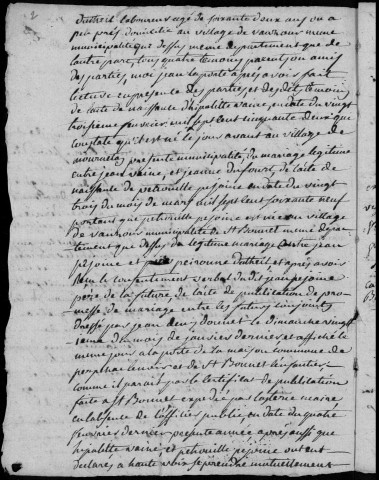 2
dutreil laboureur agé de soixante deux ans ou a
peu près domicilié au village de vauxours meme
municipalité que dessus, meme departement que de
lautre part, tous quatre temoins parens ou amis
des parties, moi jean laporte apres avoir fait
lecture en presence des parties et des dits temoins
de lacte de naissance d'hipolitte vaine, en date du vingt
troisieme fevrier mil sept cent cinquante deux qui
constate qu'il est né le jour avant au village de
presente municipalité du mariage legitime
entre jean vaine, et jeanne dufourt, de lacte de
naissance de petronille pejoine en date du vingt
trois du mois de mars mil sept cent soixante neuf
portant que petronille pejoine est née au village
de vauxours municipalité de St Bonnet meme depar-
tement que dessus du legitime mariage entre jean
pejoine et peironne dutreil et après avoir
le consentement verbal du dit jean pejoine
pere de la future, de lacte de publication de pro-
messe de mariage entre les futurs conjoints
dressé par jean donnet le dimanche vingt
du mois de janvier dernier et affiché le
meme jour a la porte de la maison commune de
et de St Bonnet
comme il parait par le certificat de publication
faite a St Bonnet expedié par maire
en labsence de lofficier public en date du quatre
fevrier dernier presente année après aussi que
hipolitte vaine, et petronille pejoine ont eut
declaré a haute voix se prendre mutuellement